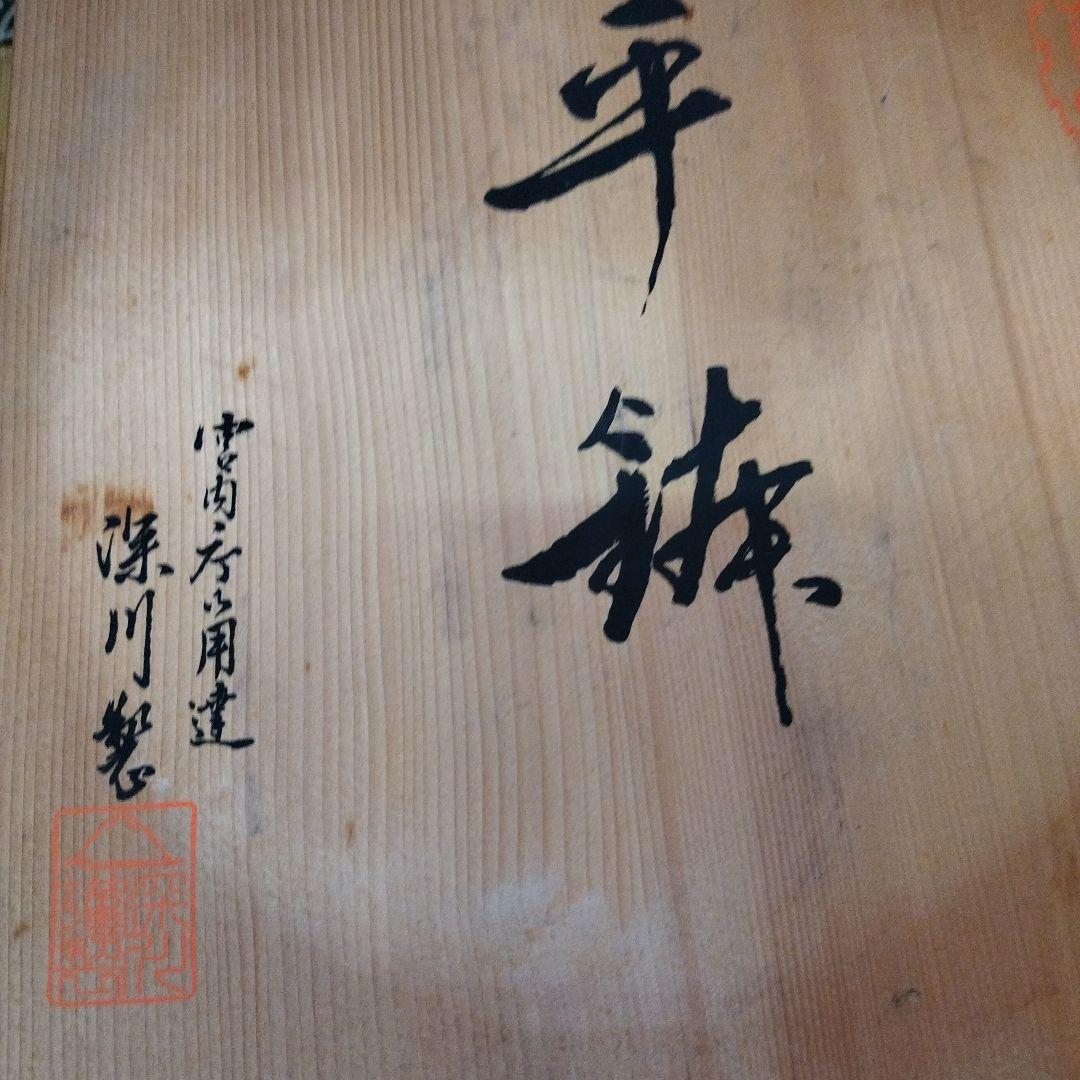 平鉢
宮内庁御用達
深川製